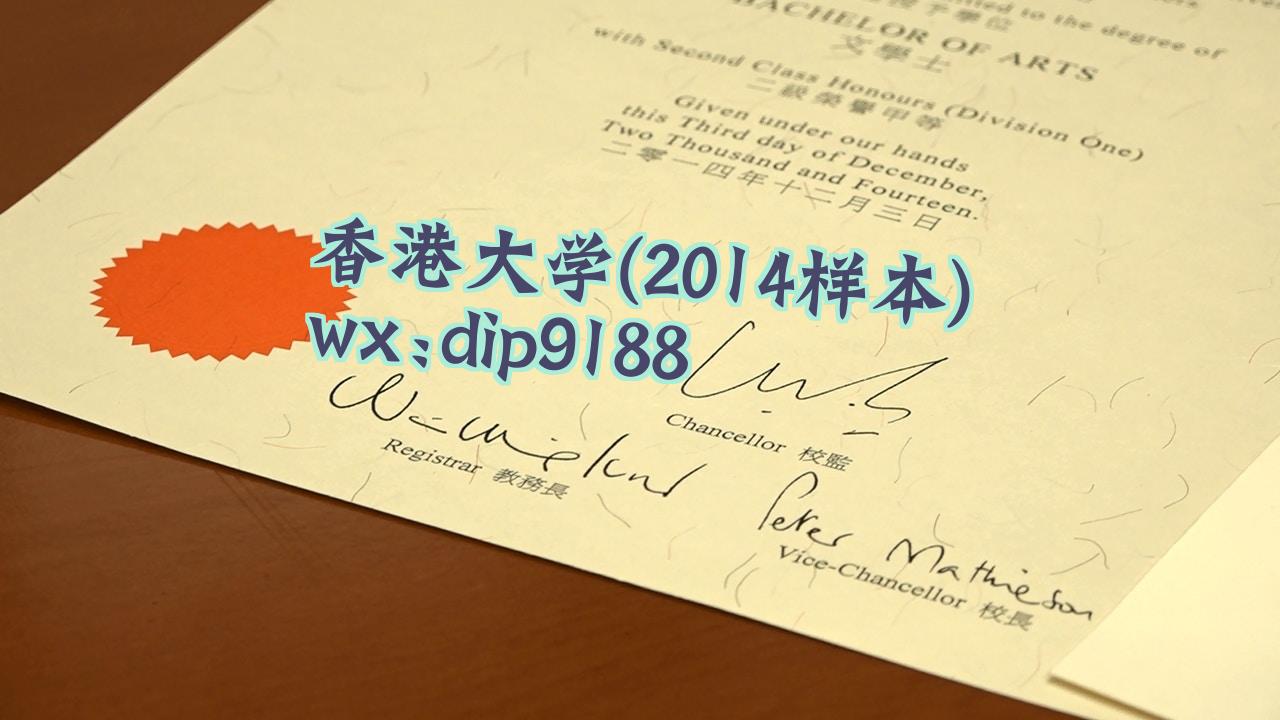 to the degree of
授予學位
BACHELOR OF ARTS
文學士
with Second Class Honours (Division One)
二級榮譽甲等
Given under our hands
this Third day of December,
Two Thousand and Fourteen.
二零一四年十二月三日
香港大学(2014样本)
wx:dip9188
Chancellor 校監
Registrar 教務長
Peter Mathieson
Vice-Chancellor 校長